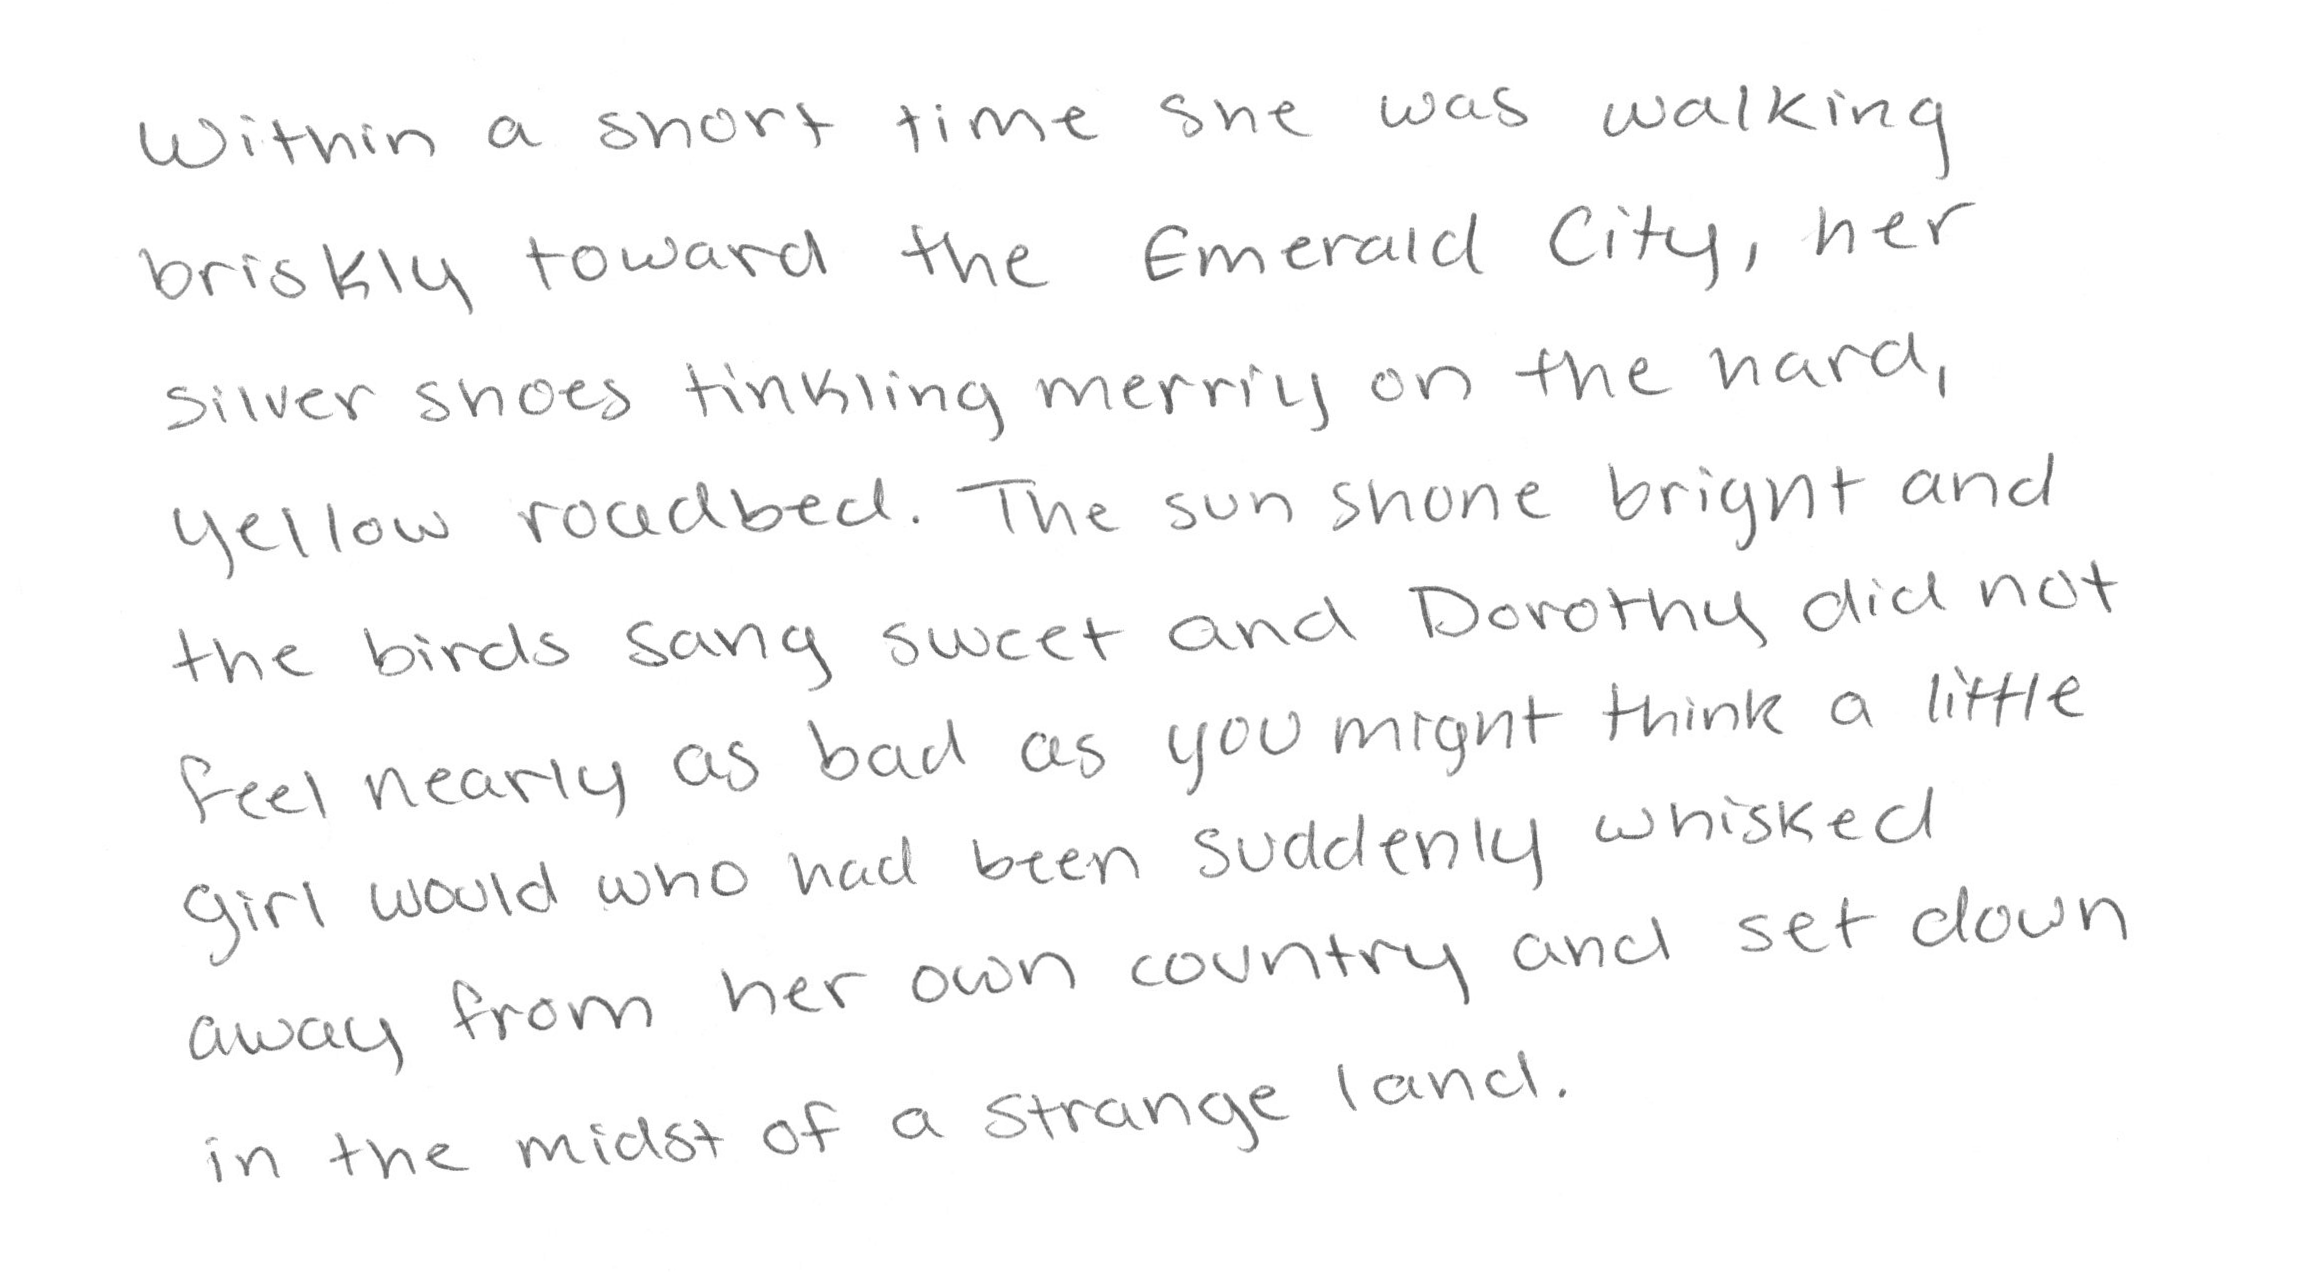 Within a short time she was walking
briskly toward the Emerald City, her
silver shoes tinkling merrily on the hard,
yellow roadbed. The sun shone bright and
the birds sang sweet and Dorothy did not
feel nearly as bad as you might think a little
girl would who had been suddenly whisked
away from her own country and set down
in the midst of a strange land.